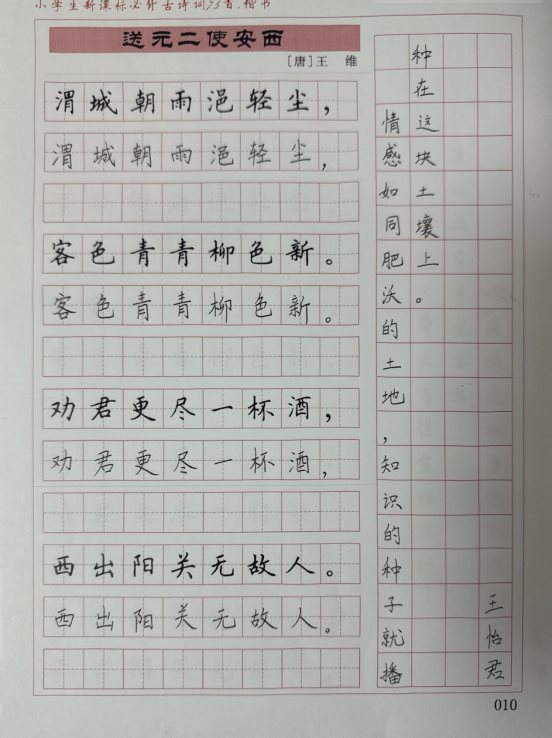 小学生新课标必背古诗词75首·楷书
送元二使安西
[唐]王 维
渭城朝雨浥轻尘，
渭城朝雨浥轻尘，
客色青青柳色新。
客色青青柳色新。
劝君更尽一杯酒，
劝君更尽一杯酒，
西出阳关无故人。
西出阳关无故人。
情感如同肥沃的土地，知识的种子就播
种在这块土壤上。
王怡君
010